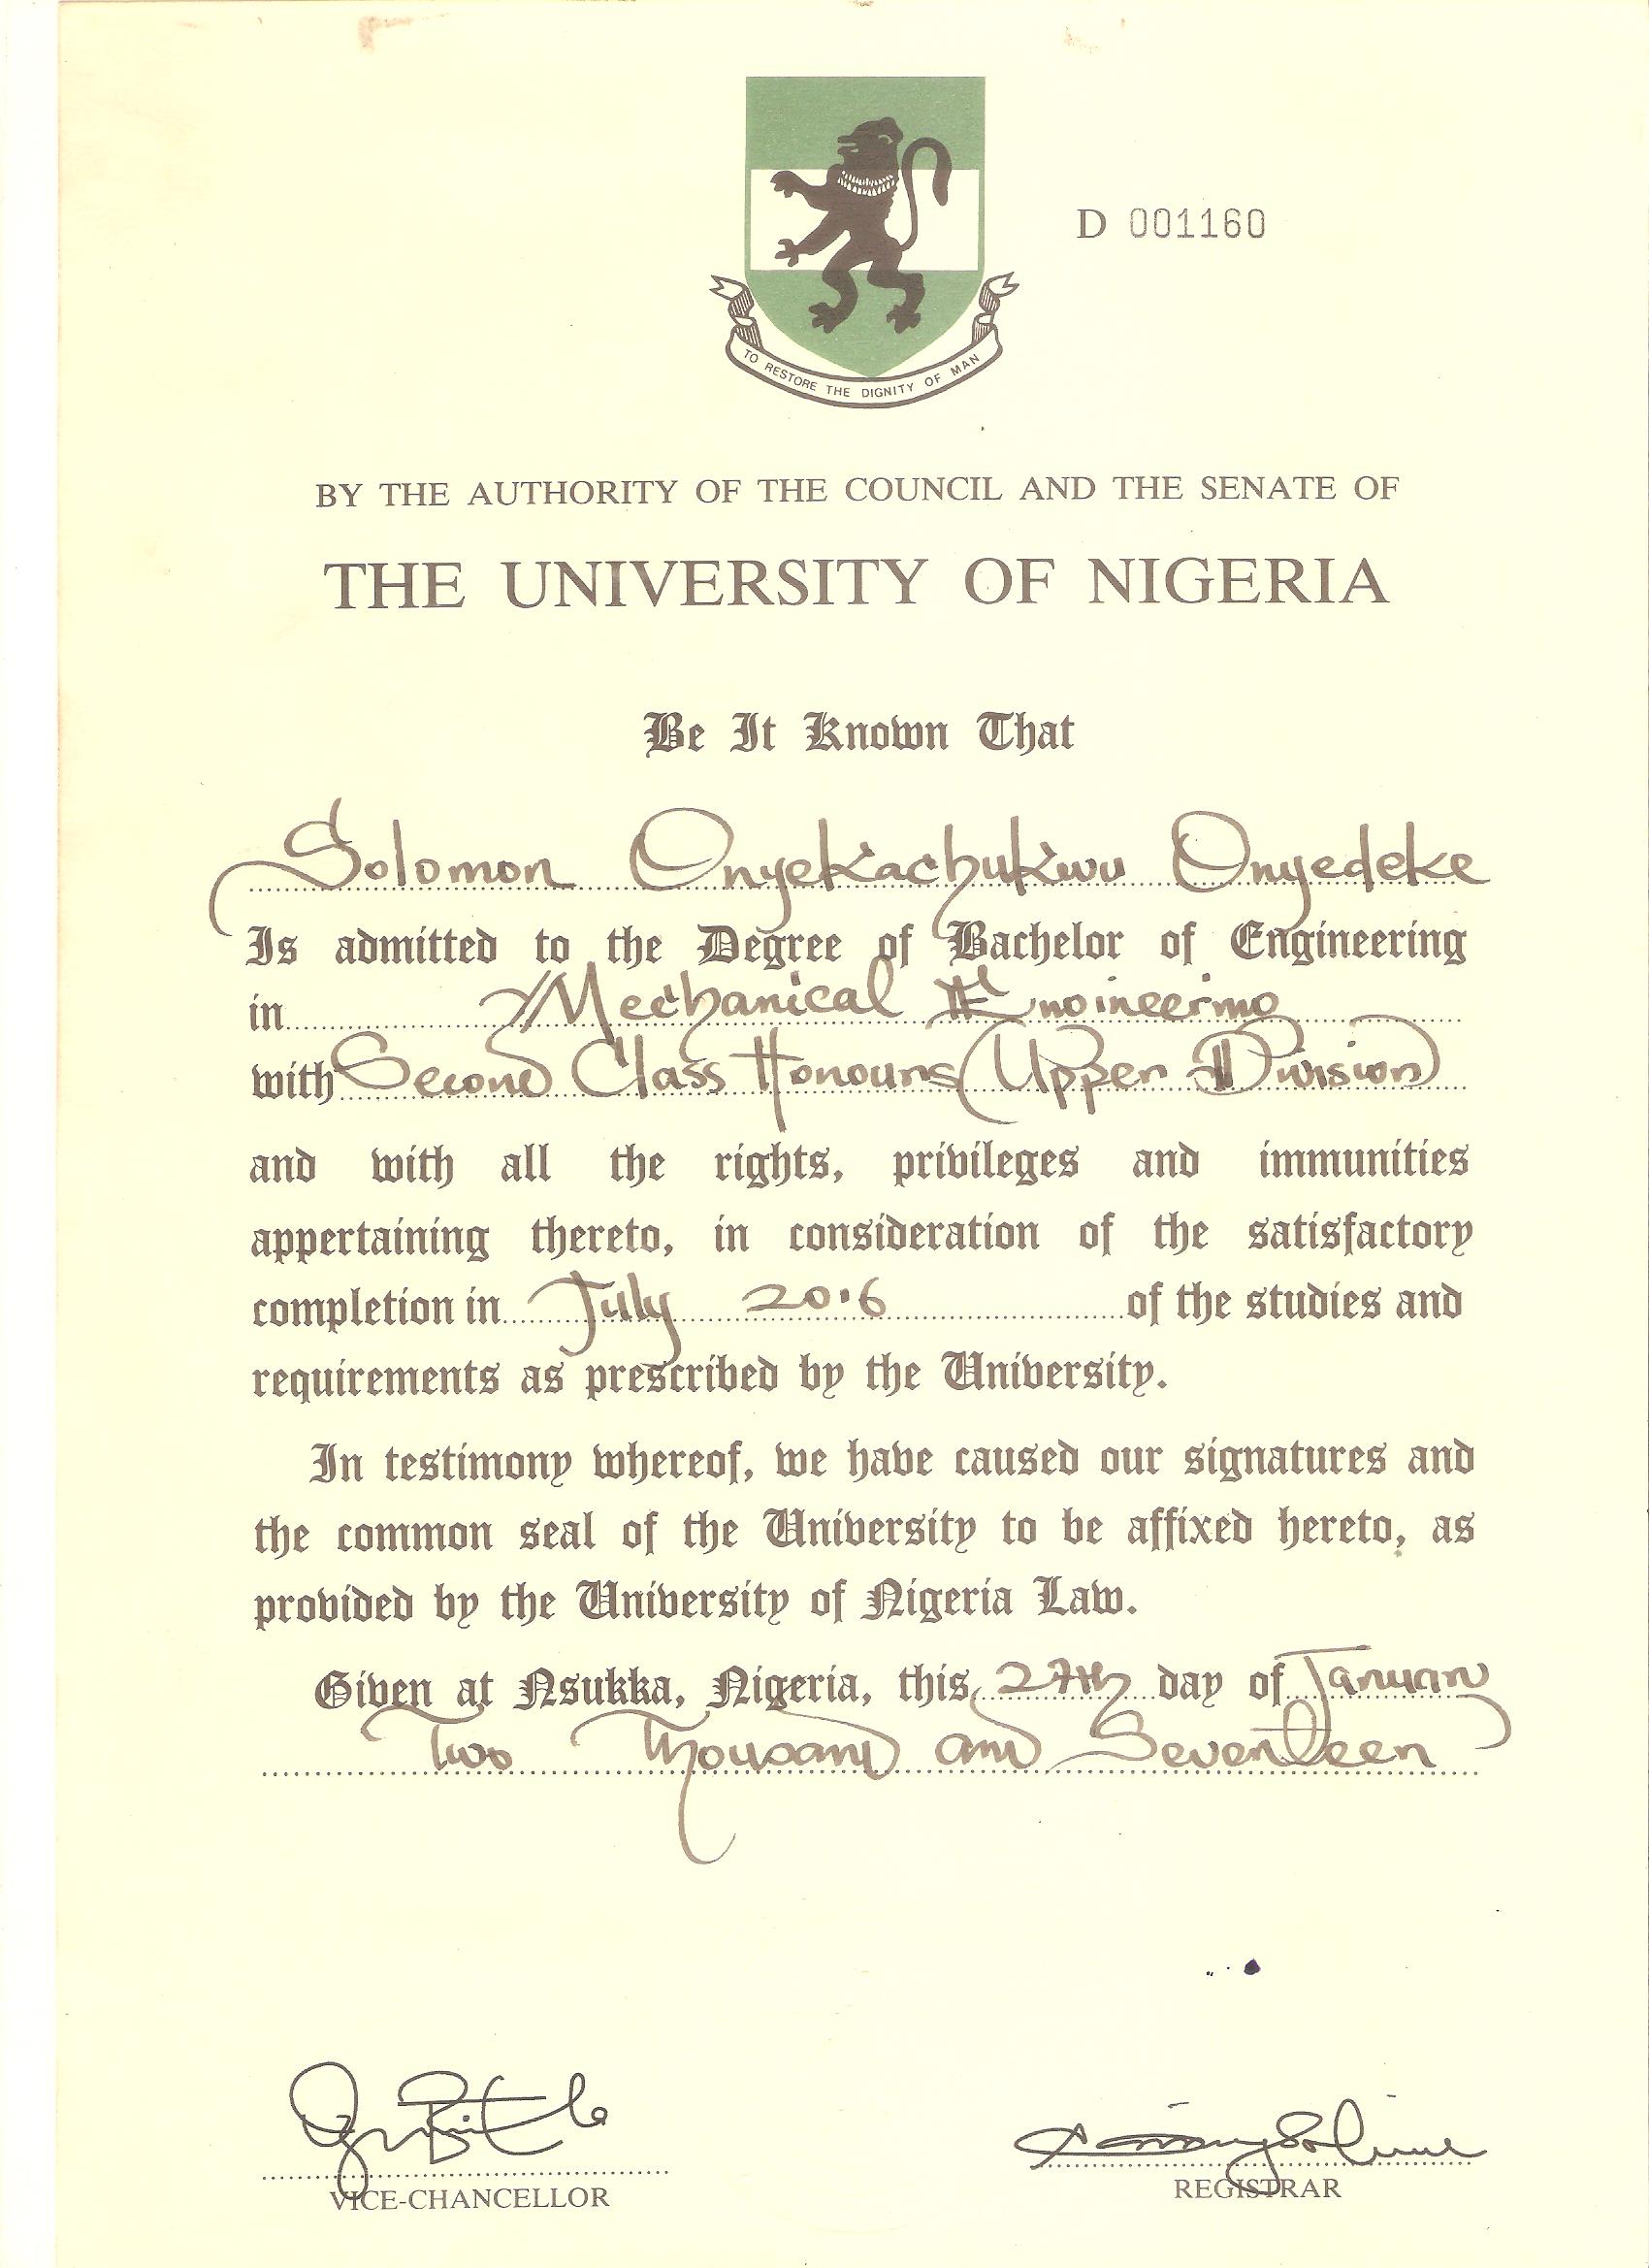 D 001160
TO RESTORE THE DIGNITY OF MAN
BY THE AUTHORITY OF THE COUNCIL AND THE SENATE OF
THE UNIVERSITY OF NIGERIA
Be It Known That
Solomon Onyekachukwu Onyedeke
Is admitted to the Degree of Bachelor of Engineering
in Mechanical Engineering
with Second Class Honours (Upper Division)
and with all the rights, privileges and immunities
appertaining thereto, in consideration of the satisfactory
completion in July 2016 of the studies and
requirements as prescribed by the University.
In testimony whereof, we have caused our signatures and
the common seal of the University to be affixed hereto, as
provided by the University of Nigeria Law.
Given at Nsukka, Nigeria, this 27th day of January
Two Thousand and Seventeen
VICE-CHANCELLOR
REGISTRAR